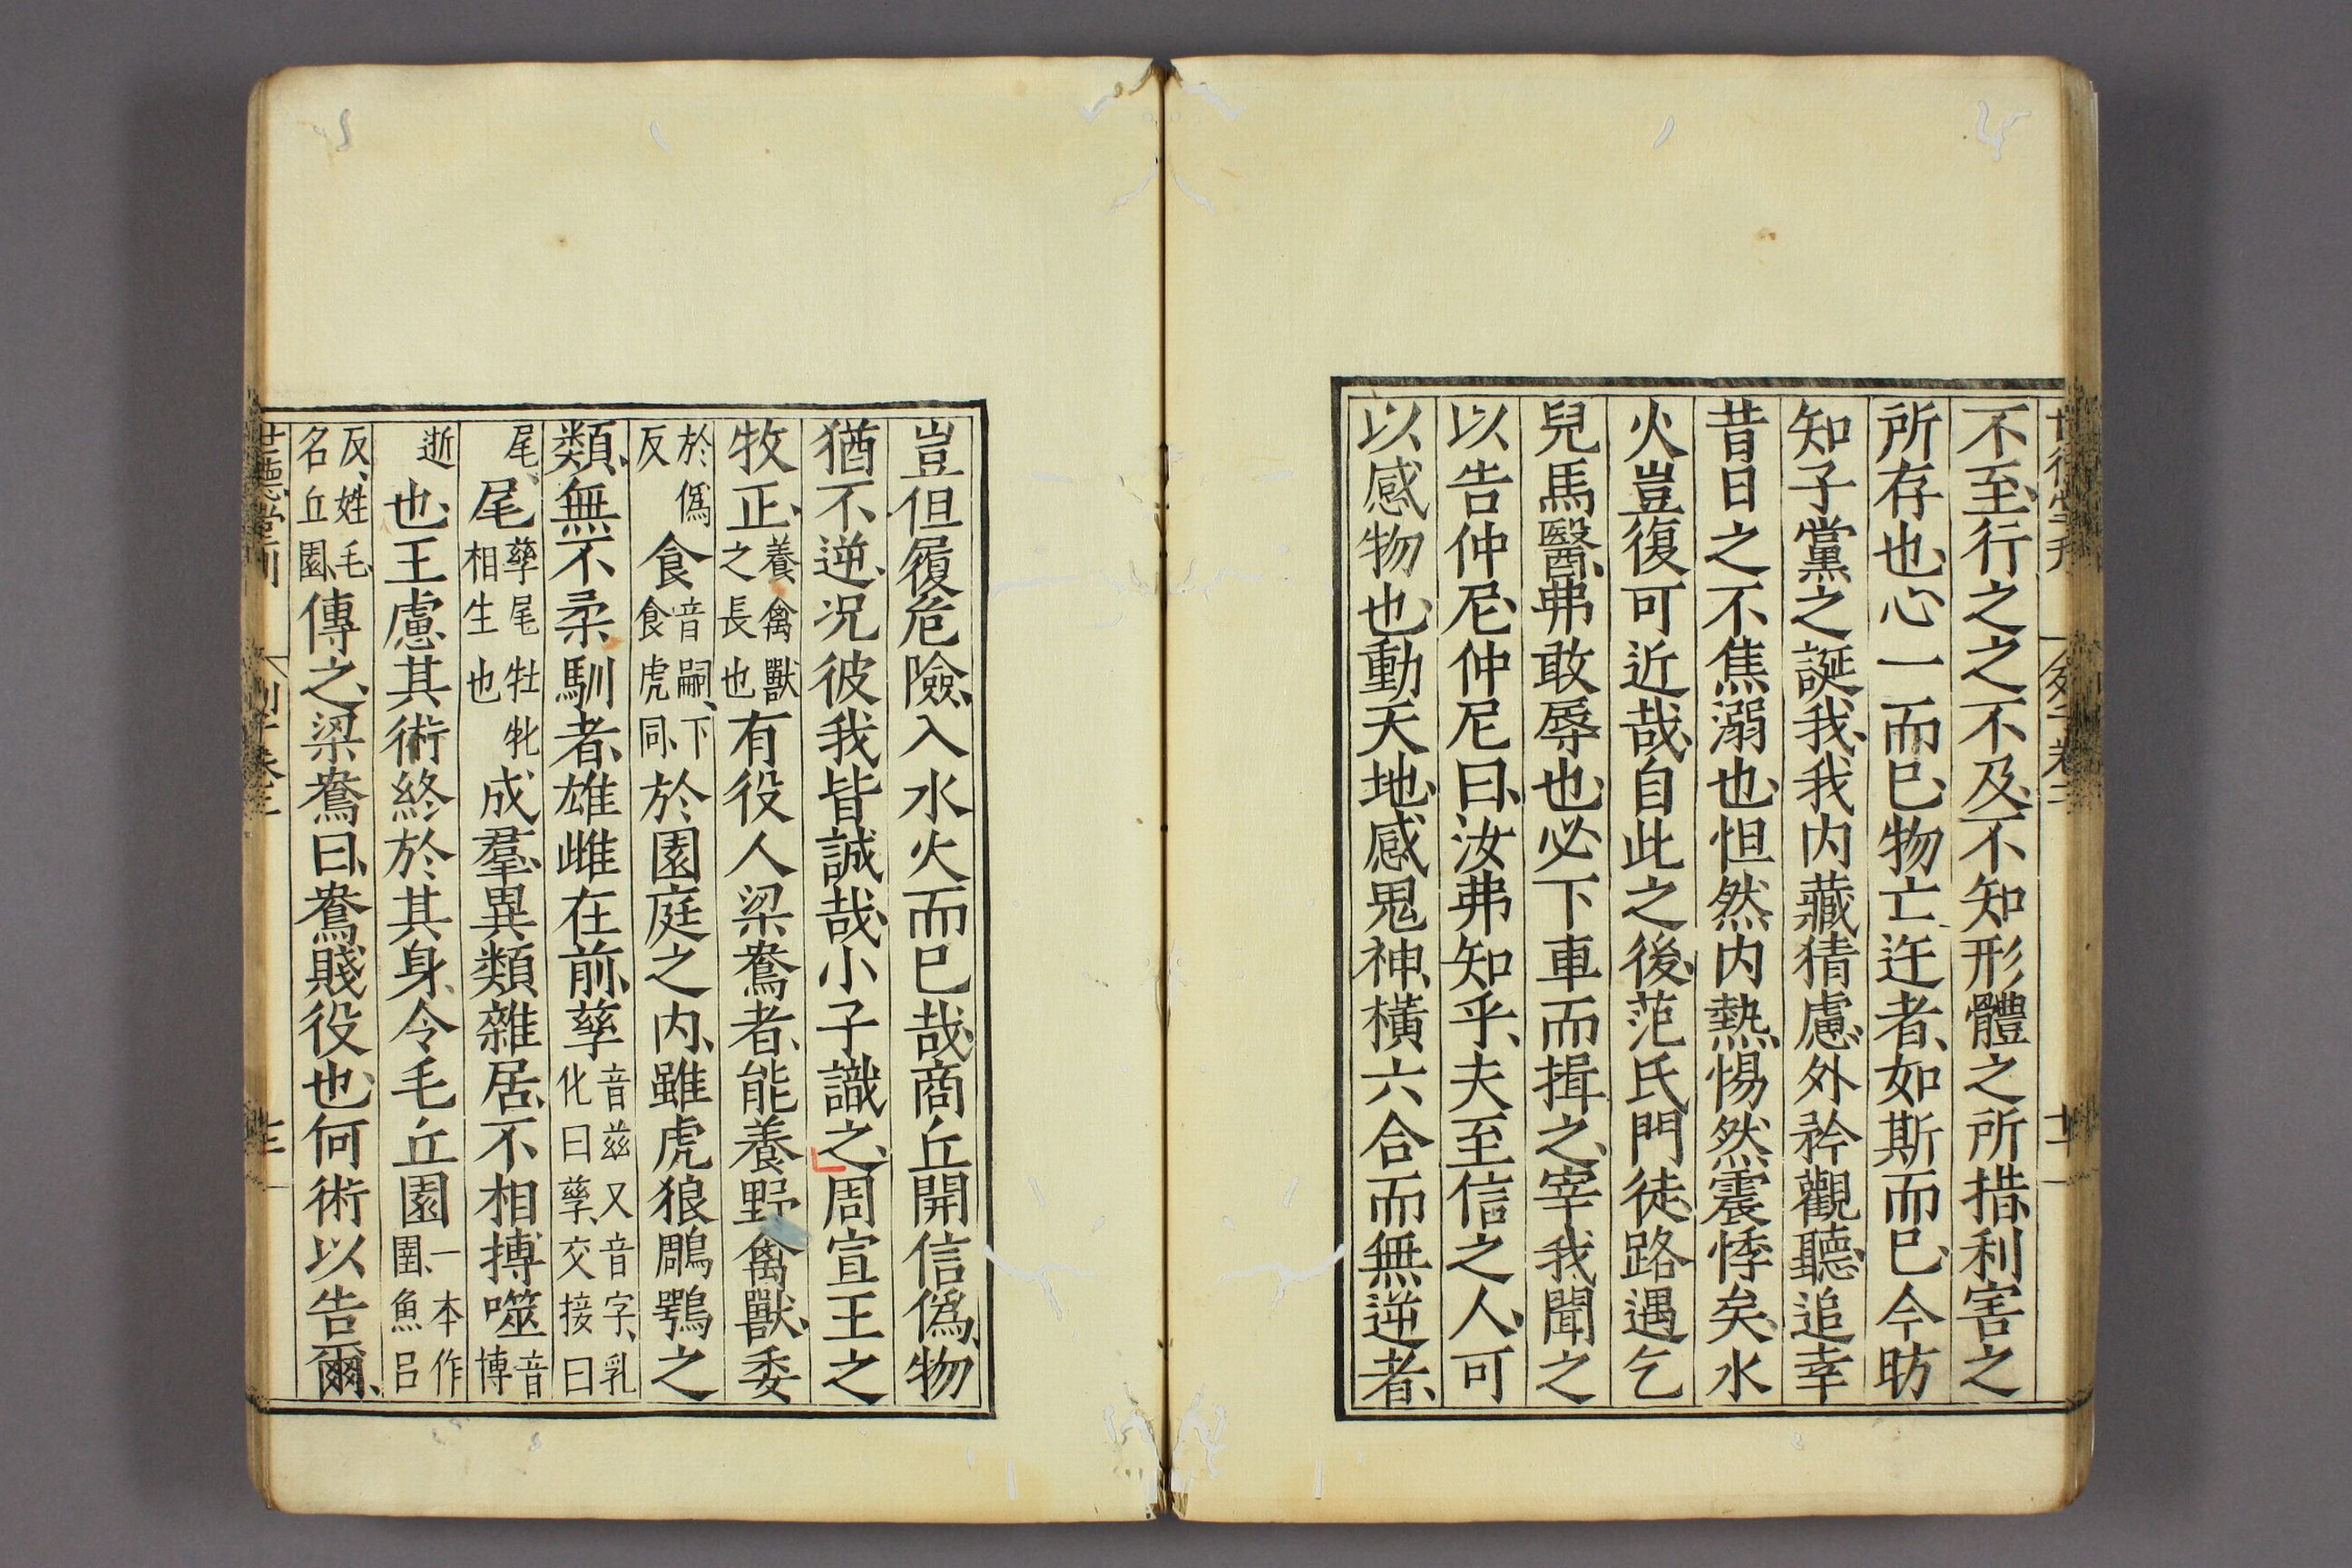 不至、行之之不及、不知形體之所措、利害之
所存也、心一而已、物亡迕者、如斯而已、今昉
知子黨之誕我、我内藏猜慮、外矜觀聽、追幸
昔日之不焦溺也、怛然内熱、惕然震悸矣、水
火豈復可近哉、自此之後、范氏門徒、路遇乞
兒馬醫、弗敢辱也、必下車而揖之、宰我聞之
以告仲尼、仲尼曰、汝弗知乎、夫至信之人、可
以感物也、動天地、感鬼神、橫六合而無逆者、
豈但履危險、入水火而已哉、商丘開信僞、物
猶不逆、况彼我皆誠哉、小子識之、周宣王之
牧正、養禽獸之長也有役人梁鴦者、能養野禽獸、委
於僞反食音嗣、下食虎同、於園庭之内、雖虎狼鵰鶚之
類、無不柔馴者、雄雌在前、孳音兹又音字、乳化曰孳、交接曰
尾、尾孳尾牡牝相生也成羣、異類雜居、不相搏噬音博
逝也、王慮其術終於其身、令毛丘園一本作圉、魚吕
反、姓毛、名丘園、傳之、梁鴦曰、鴦賤役也、何術以告爾、
世德堂刊